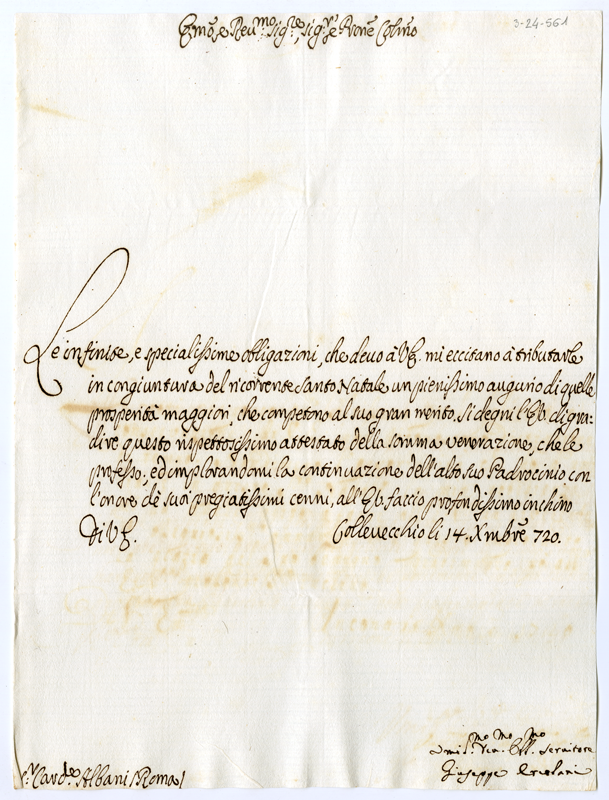 3-24-561
Em̃o, e Reu.mo Sig.re, Sig.re e Pron̄e Colm̃o
Le infinite, e specialissime obligazioni, che deuo à V.E. mi eccitano à tributarle
in congiuntura del ricorrente Santo Natale un pienissimo augurio di quelle
prosperità maggiori, che competono al suo gran merito. Si degni l'E.V. di gra=
dire questo rispettosissimo attestato della somma venerazione, che le
professo, ed implorandomi la continuazione dell'alto suo Padrocinio con
l'onore de' suoi pregiatissimi cenni, all'E.V. faccio profondissimo inchino
Di V.E. Collevecchio li 14. Xmbr̄e 720.
Umil.mo Deu.mo Obl.mo Seruitore
Giuseppe Ercolani
S.r Card.e Albani / Roma /